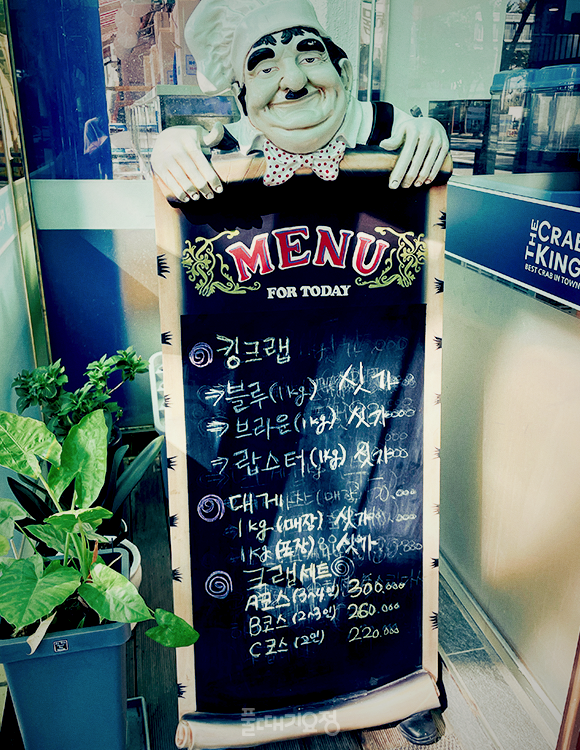 MENU
FOR TODAY
THE CRAB KING
BEST CRAB IN TOWN
킹크랩
→블루(1kg) 싯가
→브라운(1kg) 싯가
랍스터(1kg) 싯가
대게
1kg(매장) 싯가
1kg(포장) 싯가
크랩세트
A코스(3~4인) 300.000
B코스(2~3인) 260.000
C코스(2인) 220.000
풀때기요정